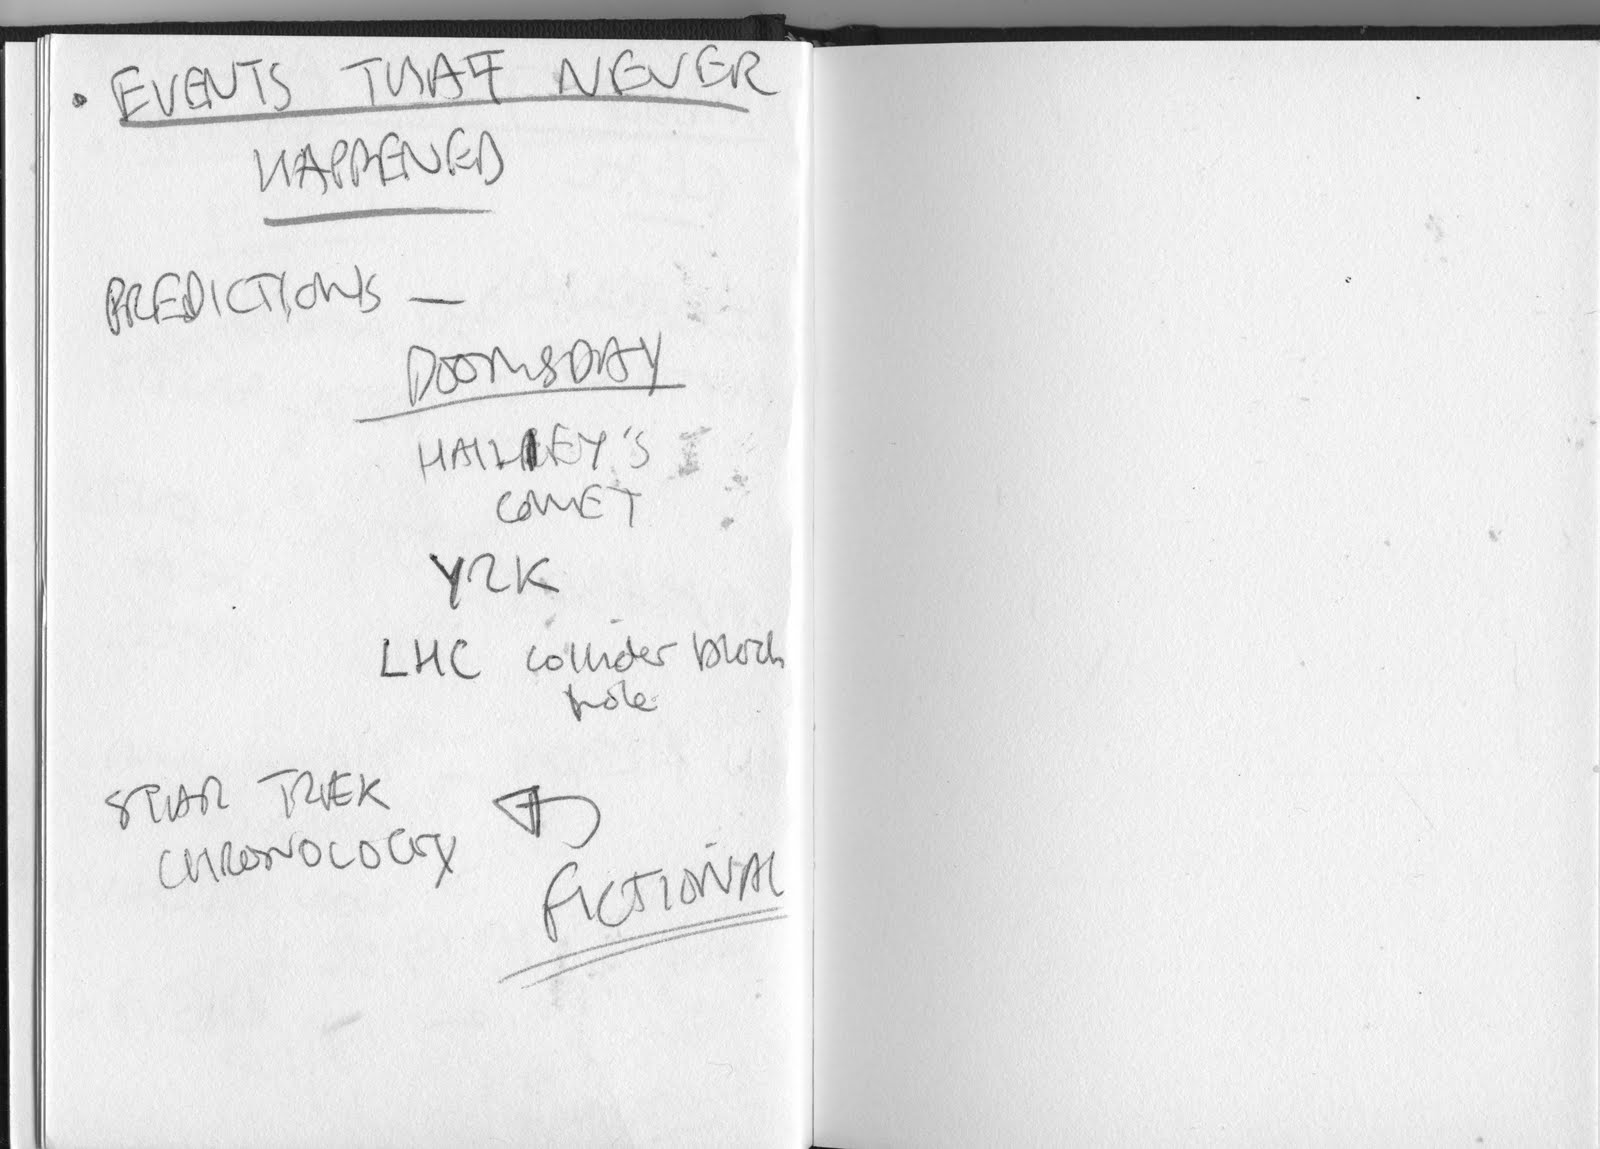 • EVENTS THAT NEVER
HAPPENED
PREDICTIONS —
DOOMSDAY
HALLEY'S
COMET
Y2K
LHC collider black
hole
STAR TREK
CHRONOLOGY
FICTIONAL